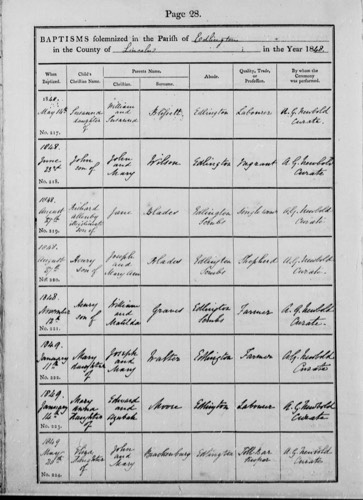 Page 28.
BAPTISMS solemnized in the Parish of Edlington
in the County of Lincoln in the Year 1848
When Baptized. Child's Christian Name. Parents Name. Abode. Quality, Trade, or Profession. By whom the Ceremony was performed.
Christian. Surname.
1848.
May 14th
No. 217.
Susanna
daughter
of
William
and
Susanna
Edlington
Labourer
A. G. Newbold
Curate.
1848.
June
23rd
No. 218.
John
son of
John
and
Mary
Wilson
Edlington
A. G. Newbold
Curate
1848.
August
27th
No. 219.
Richard
son of
Jane
Blades
Edlington
Single woman
A. G. Newbold
Curate.
1848.
August
27th
No. 220.
Henry
son of
Joseph
and
Mary Ann
Blades
Edlington
Shepherd
A. G. Newbold
Curate.
1848.
November
No. 221.
Henry
son of
William
and
Matilda
Graves
Edlington
Farmer
A. G. Newbold
Curate
1849.
January
11th
No. 222.
Mary
daughter
of
Joseph
and
Mary
Walter
Edlington
Farmer
A. G. Newbold
Curate
1849.
January
14th
No. 223.
Mary
Anna
daughter
of
Edward
and
Moore
Edlington
Labourer
A. G. Newbold
Curate.
1849
No. 224.
Eliza
daughter
of
John
and
Mary
Brackenbury
Edlington
Toll bar
keeper
A. G. Newbold
Curate